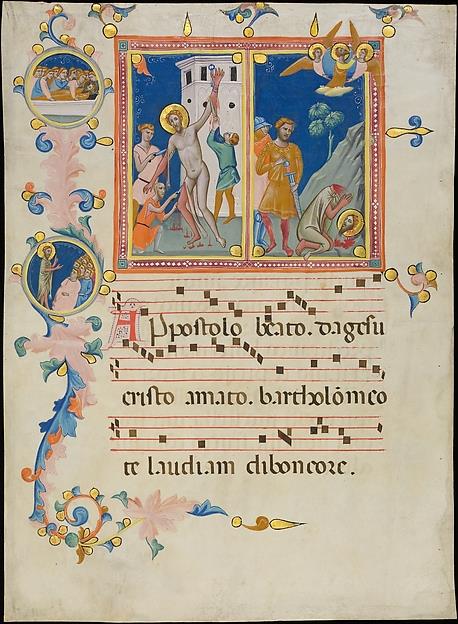 Appostolo beato. da gesu
cristo amato. bartholōmeo
te laudiam di bon core.